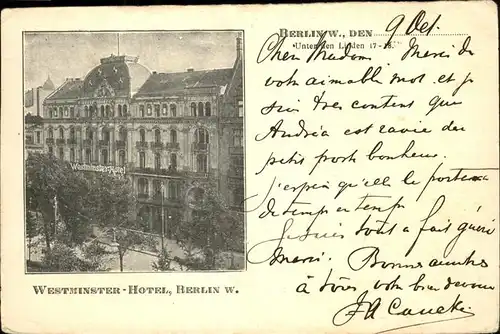 BERLIN W., DEN 9 Oct.
Unter den Linden 17-18.
Cher Madam Merci de
votre aimable mot et je
suis tres content que
Andréa est ravie du
petit porte bonheur.
J'espère qu'elle le portera
de temps en temps
Je suis tout a fait guéri
Merci. Bonnes amitiés
à tous votre bien devoué
Westminster Hotel
WESTMINSTER-HOTEL, BERLIN W.